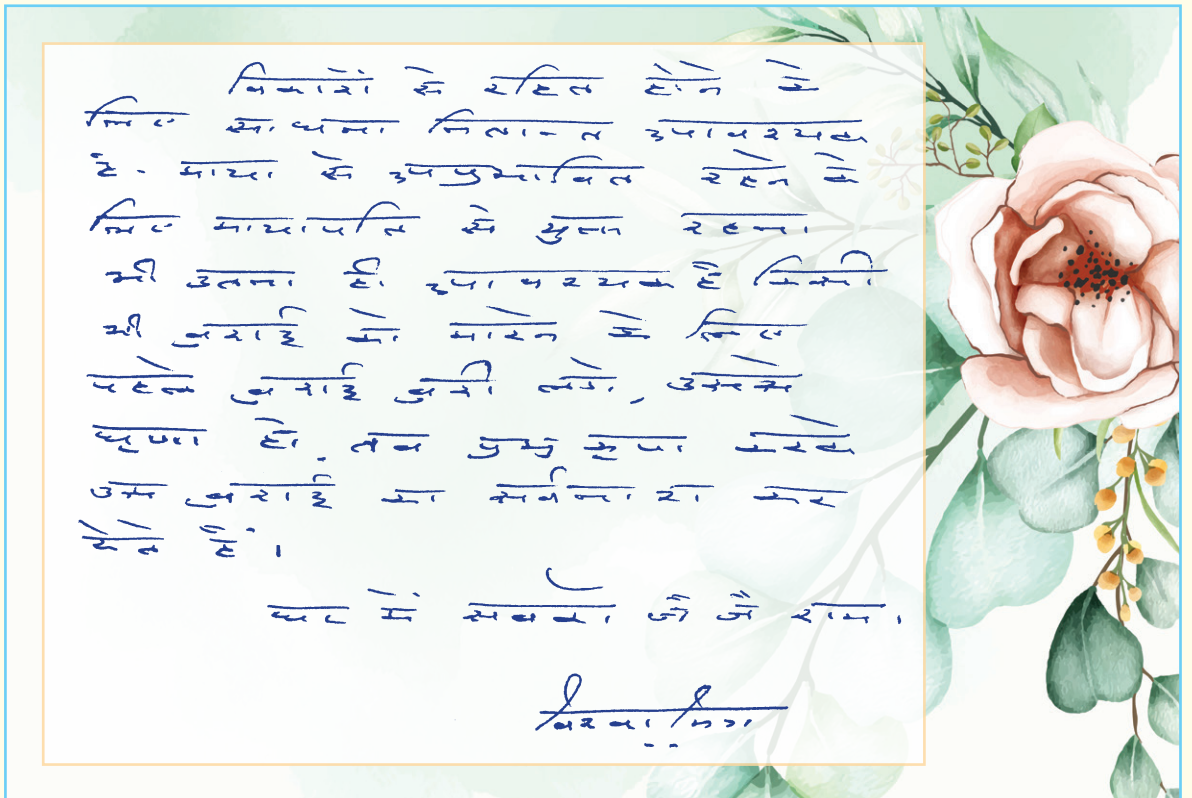 विकारों से रहित होने के
लिए साधना नितान्त आवश्यक
है. माया से अप्रभावित रहने के
लिए मायापति से युक्त रहना
भी उतना ही आवश्यक है किसी
भी बुराई को मारने के लिए
पहले बुराई बुरी लगे, उससे
घृणा हो. तब प्रभु कृपा करके
उस बुराई का सर्वनाश कर
देते हैं।
सबको जै जै राम।